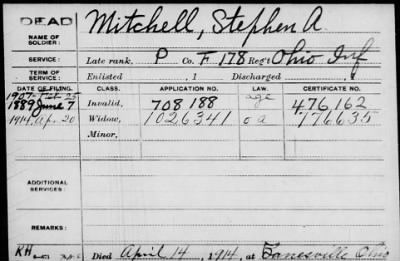 DEAD
NAME OF SOLDIER: Mitchell, Stephen A.
SERVICE: Late rank, P Co. F 178 Reg't Ohio Inf
TERM OF SERVICE: Enlisted , 1 Discharged , 1
DATE OF FILING. CLASS. APPLICATION NO. LAW. CERTIFICATE NO.
1907- Feb-25 age
1889 June 7 Invalid, 708 188 476,162
1914, Ap. 20 Widow, 1026341 o a 776635
Minor,
ADDITIONAL SERVICES:
REMARKS:
RH Died April 14, 1914, at Zanesville Ohio